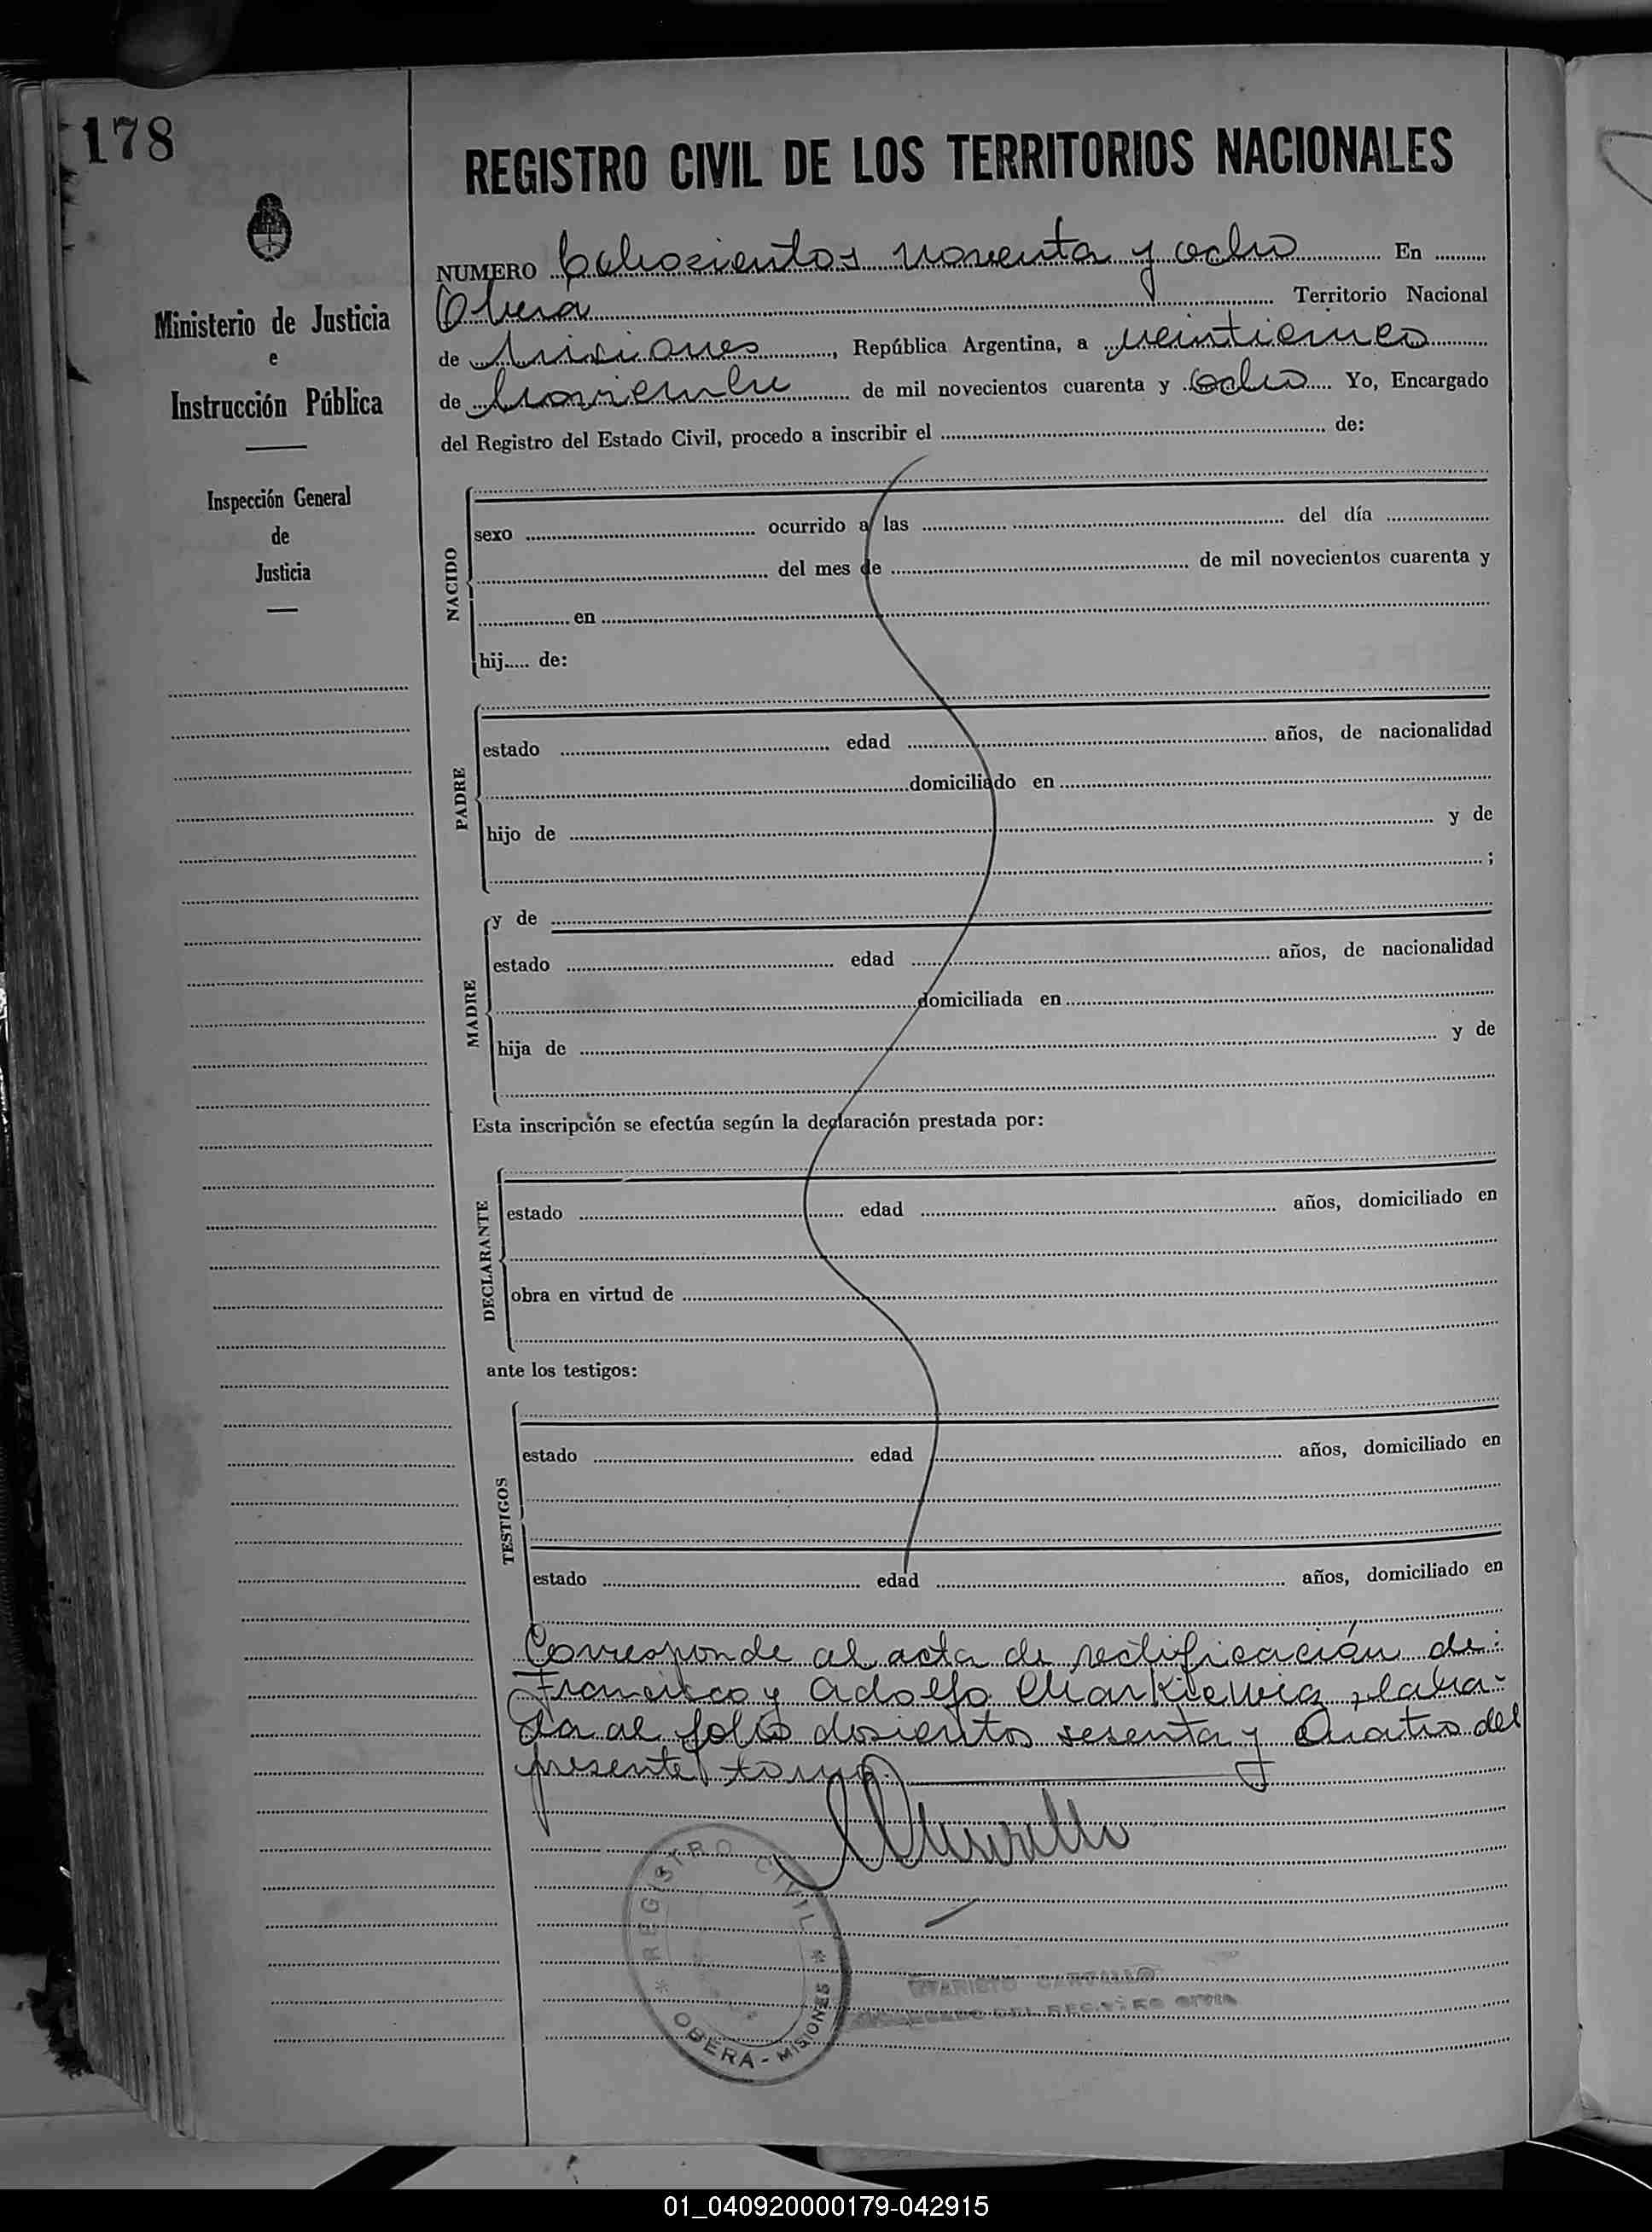 178
REGISTRO CIVIL DE LOS TERRITORIOS NACIONALES
Ministerio de Justicia
e
Instrucción Pública
Inspección General
de
Justicia
NUMERO Ochocientos noventa y ocho En
Oberá Territorio Nacional
de Misiones, República Argentina, a veinticinco
de Noviembre de mil novecientos cuarenta y ocho Yo, Encargado
del Registro del Estado Civil, procedo a inscribir el de:
NACIDO
sexo ocurrido a las del día
del mes de de mil novecientos cuarenta y
en
hij..... de:
PADRE
estado edad años, de nacionalidad
domiciliado en
hijo de y de
;
MADRE
y de
estado edad años, de nacionalidad
domiciliada en
hija de y de
Esta inscripción se efectúa según la declaración prestada por:
DECLARANTE
estado edad años, domiciliado en
obra en virtud de
ante los testigos:
TESTIGOS
estado edad años, domiciliado en
estado edad años, domiciliado en
Corresponde al acta de rectificación de:
Francisco y Adolfo Markiewicz, labra-
da al folio dosientos sesenta y Cuatro del
presente tomo.
REGISTRO CIVIL
OBERÁ - MISIONES
DEL REGISTRO CIVIL
01_040920000179-042915